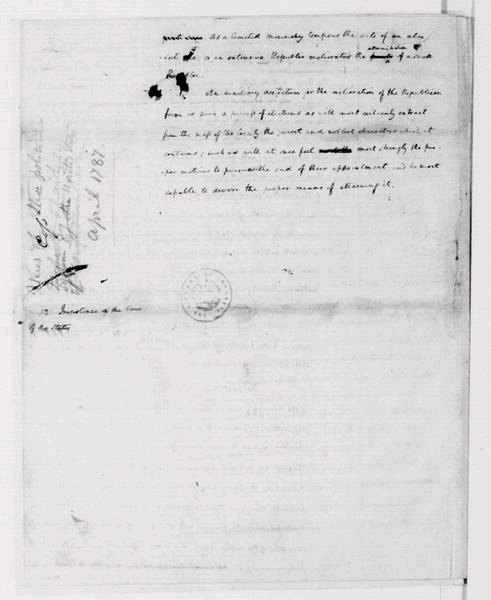 As a limited monarchy tempers the evils of an abso-
lute one; so an extensive Republic meliorates the administration of a small
Republic.
An auxiliary desideratum for the melioration of the Republican
form is such a process of elections as will most certainly extract
from the mass of the Society the purest and noblest characters which it
contains; such as will at once feel most strongly the pro-
per motives to pursue the end of their appointment, and be most
capable to devise the proper means of attaining it.
Vices of the political
System of the United States
April 1787
12 Impotence of the laws
of the States